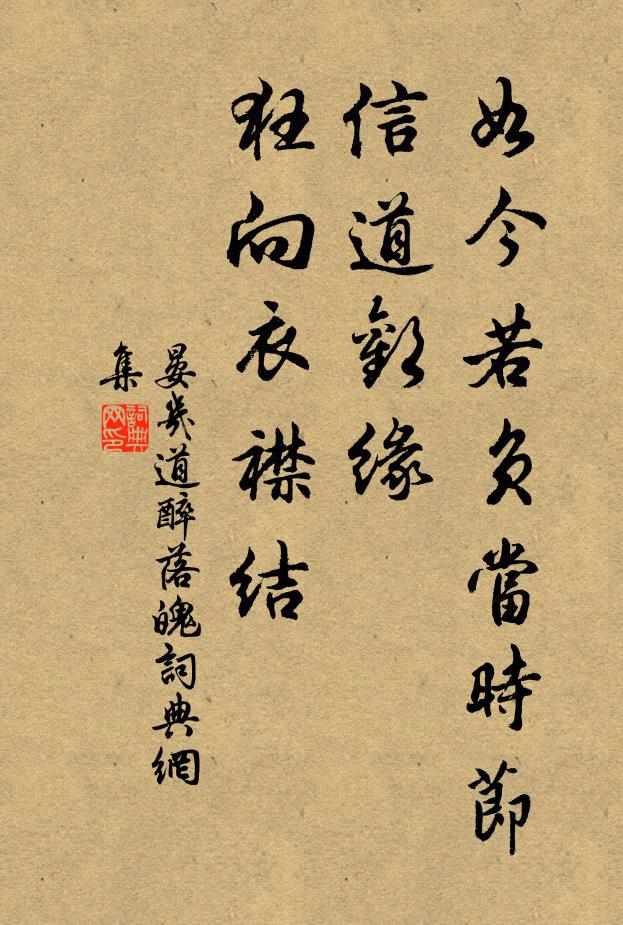 如今若負當時節
信道歡緣
狂向衣襟結
晏幾道醉落魄詞典網
集
詞典
网印